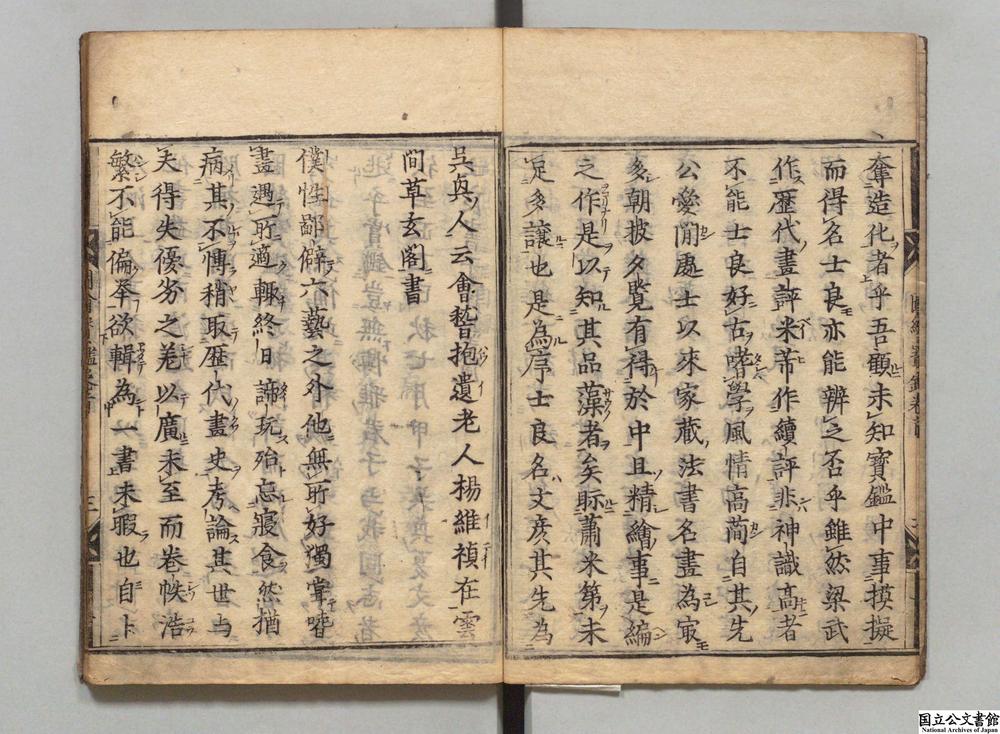 奪造化者乎吾顧未知寶鑑中事摸擬
而得名士良亦能辨之否乎雖然梁武
作歷代畫評米芾作續評非神識高者
不能士良好古嗜學風情高簡自其先
公愛閒處士以來家藏法書名畫為㝡
多朝披夕覽有得於中且精繪事是編
之作是以知其品藻者矣眎蕭米第未
足多讓也是為序士良名文彦其先為
吳興人云會稽抱遺老人楊維禎在雲
間草玄閣書
僕性鄙僻六藝之外他無所好獨嘗嗜
畫遇所適輒終日諦玩殆忘寢食然猶
病其不慱稍取歷代畫史考論其世与
夫得失優劣之差以廣未至而卷帙浩
繁不能偏舉欲輯為一書未暇也自卜
三
国立公文書館
National Archives of Japan